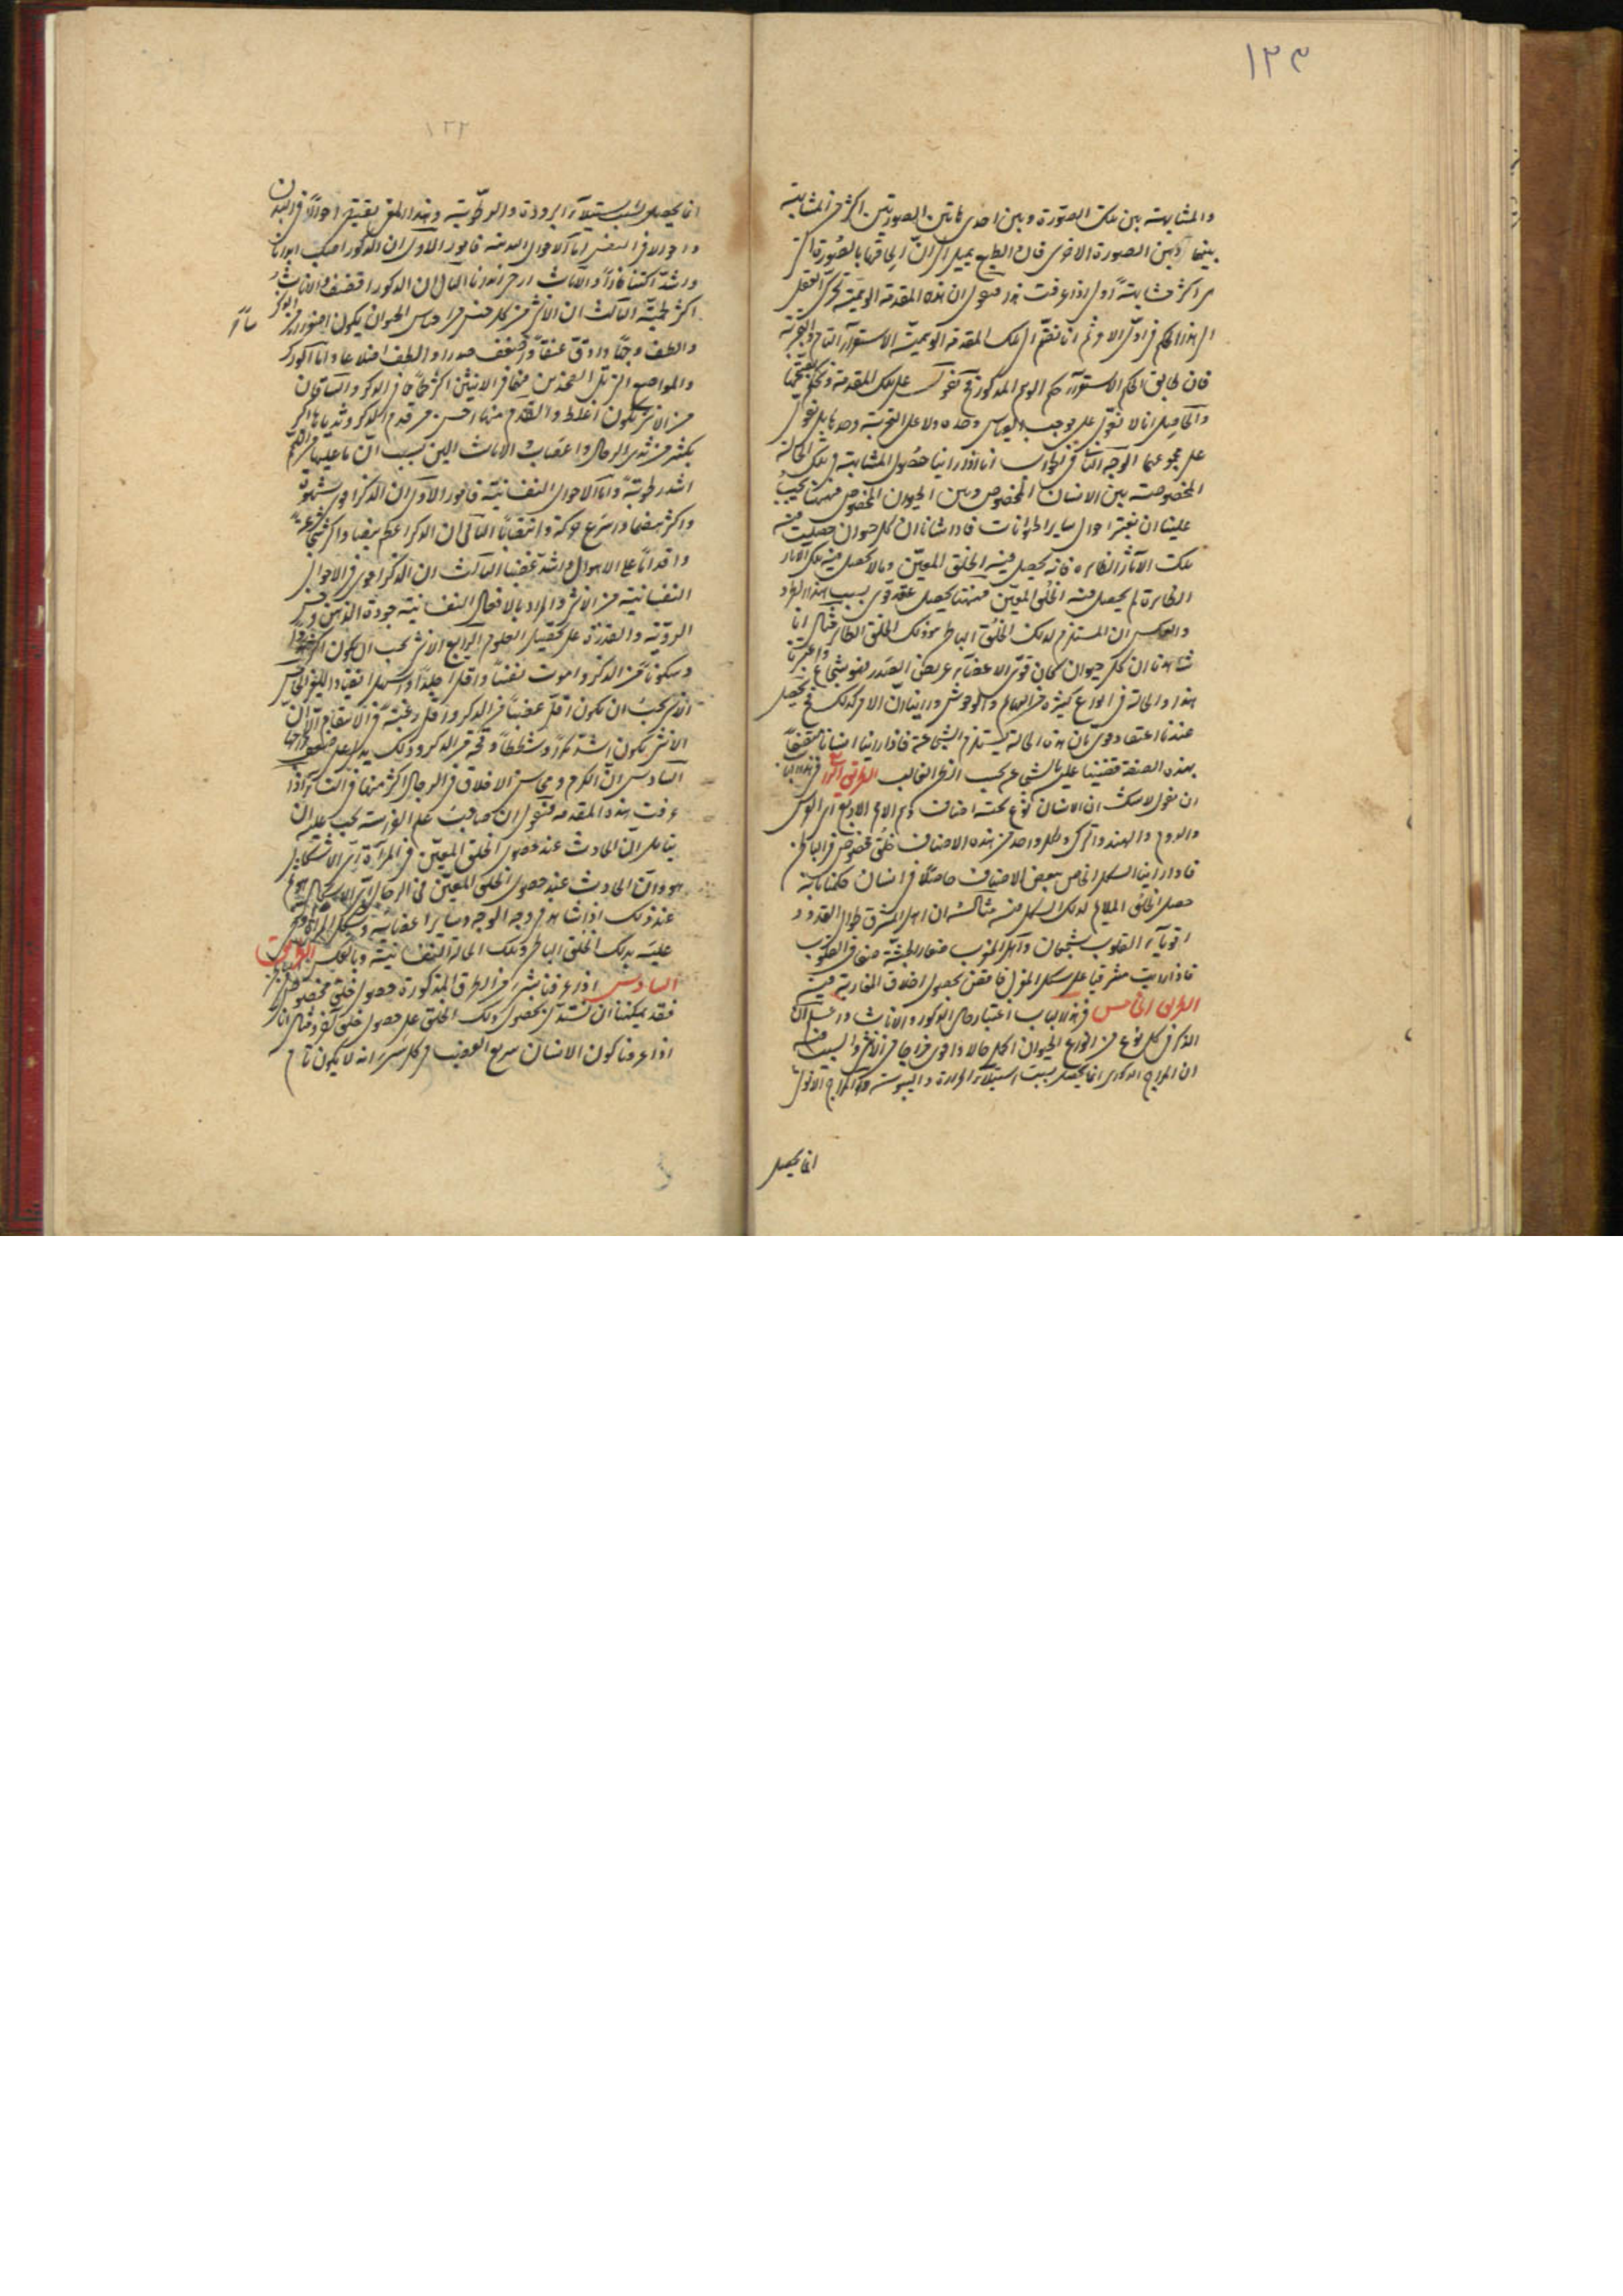 ١٢٣
والمشابهة بين تلك الصورة وبين احدى هاتين الصورتين اكثر من المشابهة
بينها وبين الصورة الاخرى فان الطبع يميل الى ان الحاقها بالصورة التى
هى اكثر مشابهة اولى اذا عرفت هذا فنقول ان هذه المقدمة الوهمية تحرك العقل
الى هذا الحكم فى اول الامر ثم انا نضم الى تلك المقدمة الوهمية الاستقراء التام والتجربة
فان طابق الحكم الاستقراء حكم الوهم المذكور فح نعول على تلك المقدمة ونحكم بصحتها
والحاصل انا لا نعول على موجب القياس وحده ولا على التجربة وحدها بل نعول
على مجموعهما الوجه الثانى انا اذا راينا حصول المشابهة فى تلك الحالة
المخصوصة بين الانسان المخصوص وبين الحيوان المخصوص فههنا يجب
علينا ان نعتبر احوال ساير الحيوانات فاذا شاهدنا ان كل حيوان حصلت فيه
تلك الاثار الظاهرة فانه يحصل فيه الخلق المعين وما لا يحصل فيه تلك الاثار
الظاهرة لم يحصل فيه الخلق المعين فههنا يحصل عقد قوى بسبب هذا الطرد
والعكس ان المستلزم لذلك الخلق الباطن هو ذلك الخلق الظاهر مثاله انا
شاهدنا ان كل حيوان كان قوى الاعضاء عريض الصدر فهو شجاع واعتبرنا
هذه الحالة فى انواع كثيرة من البهايم والوحوش وراينا ان الامر كذلك فح يحصل
عندنا اعتقاد قوى بان هذه الحالة يستلزم الشجاعة فاذا راينا انسانا متصفا
بهذه الصفة قضينا عليه بالشجاعة بحسب الظن الغالب الطريق الرابع فى هذا الباب
ان نقول لا شك ان الانسان نوع تحته اصناف وهم الامم الاربع اى الفرس
والروم والهند والترك ولكل واحد من هذه الاصناف خلق مخصوص فى الباطن
فاذا راينا الشكل الخاص ببعض الاصناف حاصلا فى انسان حكمنا بانه
حصل الخلق الملايم لذلك الشكل فيه مثاله ان اهل المشرق طوال القدود
اقوياء القلوب شجعان واهل المغرب صغار الجثة ضعاف القلوب
فاذا رايت مشرقيا على شكل المغربى فاقض بحصول اخلاق المغاربة فيه
الطريق الخامس فى هذا الباب اعتبار حال الذكور والاناث واعلم ان
الذكر فى كل نوع من انواع الحيوان اكمل حالا واقوى مزاجا من الانثى والسبب فيه
ان المزاج الذكورى انما يحصل بسبب استيلاء الحرارة واليبوسة والمزاج الانوثى
انما يحصل
١٢٢
انما يحصل بسبب استيلاء البرودة والرطوبة وهذا المعنى يقتضى احوالا فى البدن
واحوالا فى النفس اما الاحوال البدنية فامور الاول ان الذكور اصلب ابدانا
واشد اكتنازا والاناث ارخى ابدانا الثانى ان الذكور اقضف والاناث
اكثر لحمية الثالث ان الانثى من كل جنس من اجناس الحيوان يكون اصغر راسا من الذكر
والطف وجها وادق عنقا واضعف صدرا والطف اضلاعا واما الورك
والمواضع التى تلى الفخذين منها فى الانثى اكثر لحما مما فى الذكر والساقان
من الانثى تكون اغلظ والقدم منها احسن من قدم الذكر وثدياها اكبر
بكثير من ثدى الرجال واعصاب الاناث الين بسبب ان ما عليها من اللحم
اشد رطوبة واما الاحوال النفسانية فامور الاول ان الذكر اقوى شهوة
واكثر هضما واسرع حركة وانتصابا الثانى ان الذكر اعظم نبضا واكثر شجاعة
واقداما على الاهوال واشد غضبا الثالث ان الذكر اقوى فى الاحوال
النفسانية من الانثى والمراد بالافعال النفسانية جودة الذهن وحسن
الروية والقدرة على تحصيل العلوم الرابع الانثى يجب ان يكون اكثر هدوا
وسكونا من الذكر واموت نفسا واقل جلدا واسهل انقيادا للغير الخامس
الانثى يجب ان تكون اقل غضبا من الذكر واقل رغبة فى الانتقام الا ان
الانثى يكون اشد مكرا وتسلطا وقحة من الذكر وذلك يدل على ضعف مزاجها
السادس ان الكرم ومحاسن الاخلاق فى الرجال اكثر منها فى النساء اذا
عرفت هذه المقدمة فنقول ان صاحب علم الفراسة يجب عليه ان
يتامل ان الحادث عند حصول الخلق المعين فى المراة اى الاشكال
هو وان الحادث عند حصول الخلق المعين فى الرجال اى الاشكال هو فح
عند ذلك اذا شاهد فى وجه الوجه وساير اعضائه
عليه بذلك الخلق الباطن وتلك الحالة النفسانية وبالعكس الطريق
السادس اذا عرفنا بشىء من الطرق المذكورة حصول خلق مخصوص
فقد يمكننا ان نستدل بحصول ذلك الخلق على حصول خلق اخر مثاله انا
اذا عرفنا كون الانسان سريع الغضب من كل شىء انه لا يكون تام